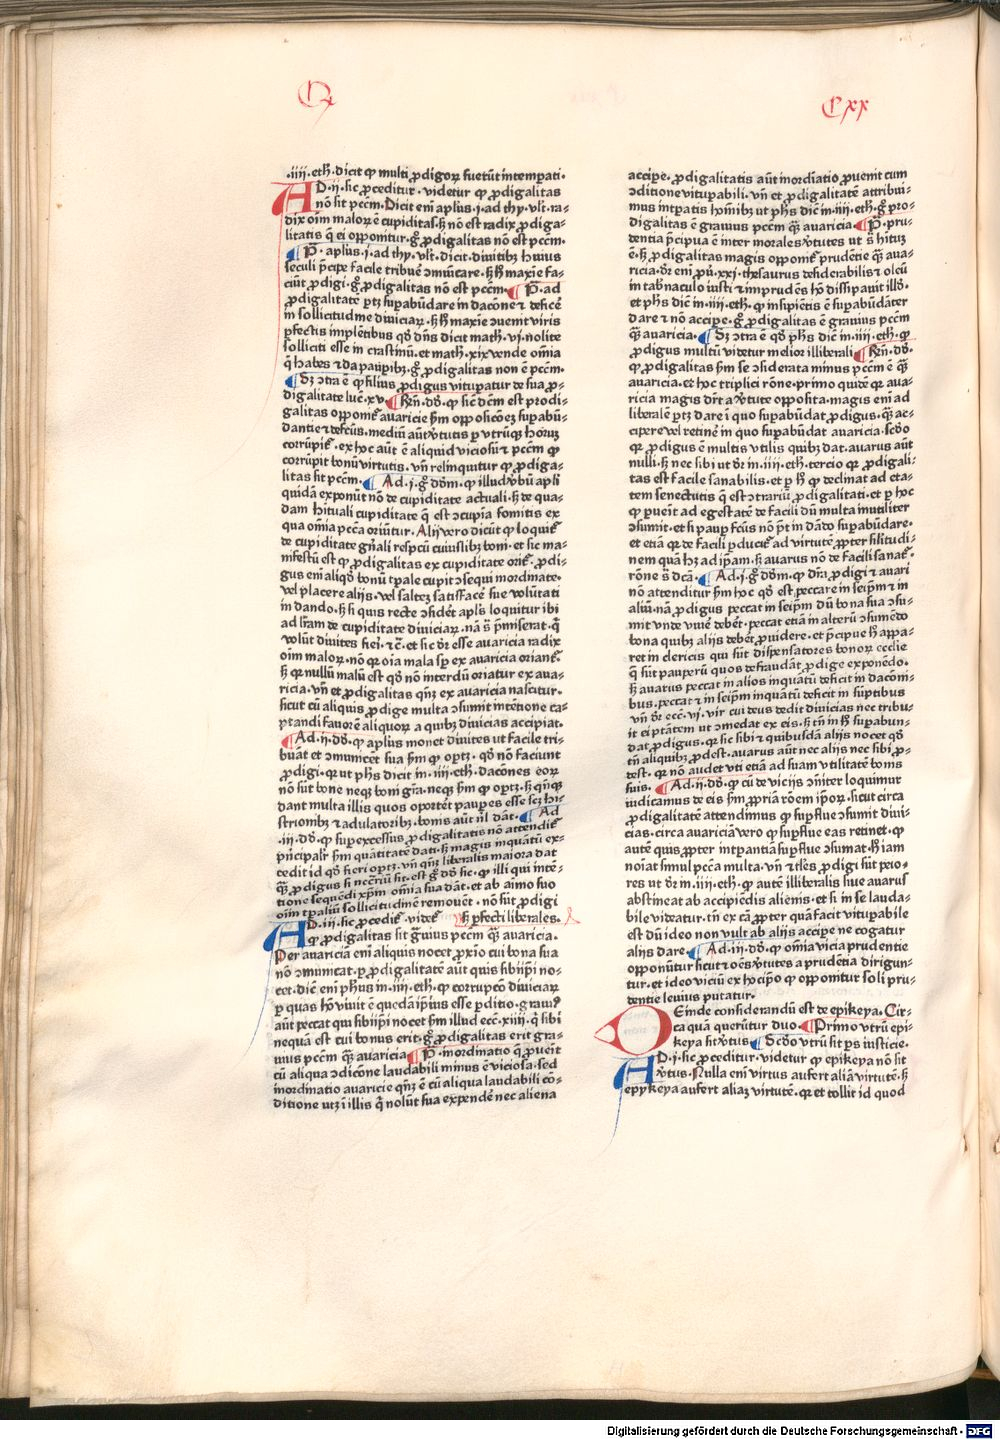 Q
Cxx
.iiii.eth̄. dicit ꝙ multi ꝓdigoꝝ fuerūt intemꝑati.
AD.ii. sic ꝓceditur. videtur ꝙ ꝓdigalitas
nō sit pccm̄. Dicit eni aplus.i.ad thy. vlt. ra-
dix oim̄ maloꝝ ē cupiditas. sꝫ nō est radix ꝓdiga-
litatis q̄ ei opponitur. gͦ ꝓdigalitas nō est pccm̄.
¶ P̄. aplus.i.ad thy. vlt. dicit. diuitibꝫ huius
seculi p̄cipe facile tribuē ↄmūicare. sꝫ h̄ maxie fa-
ciūt ꝓdigi. gͦ ꝓdigalitas nō est pccm̄. ¶ P̄. ad
ꝓdigalitatē ꝑtꝫ suꝑabūdare in dacōne ⁊ deficē
in sollicitudine diuiciaꝝ. sꝫ h̄ maxie ↄuenit viris
ꝑfectis implētibus qd̄ dn̄s dicit math̄. vi. nolite
solliciti esse in crastinū. et math̄. xix vende om̄ia
q̄ habes ⁊ da pauꝑibꝫ. gͦ ꝓdigalitas non ē pccm̄.
¶ Sꝫ ↄtra ē ꝙ filius ꝓdigus vituꝑatur de sua ꝓ-
digalitate luc̄. xv. ¶ Rn̄. dd̄. ꝙ sic̄ dc̄m est ꝓdi-
galitas opponit᷑ auaricie sm̄ opp̄ōsicōeꝫ suꝑabū-
dantie ⁊ defcūs. mediū aūt v̓tutis ꝑ vtrūqꝫ hoꝝꝫ
corrūpit᷑. ex hoc aūt ē aliquid viciosū ⁊ pccm̄ ꝙ
corrūpit bonū virtutis. vn̄ relinquitur ꝙ ꝓdiga-
litas sit pccm̄. ¶ Ad.i. gͦ dd̄m. ꝙ illud v̓bū apli
quidā exponūt nō de cupiditate actuali. sꝫ de qua-
dam hituali cupiditate q̄ est ↄcupīa fomitis ex
qua om̄ia pccā oriūtur. Alij vero dicūt ꝙ loquit᷑
de cupiditate gn̄ali respcū cuiuslibꝫ boni. et sic ma-
nifestū est ꝙ ꝓdigalitas ex cupiditate orit᷑. ꝓdi-
gus eni aliqd̄ bonū tꝑale cupit ↄsequi inordinate.
vel placere alijs. vel saltez satisfacē sue volūtati
in dando. sꝫ si quis recte ↄsidēt apls̄ loquitur ibi
ad lr̄am de cupiditate diuiciaꝝ. nā s̄ p̄miserat. q̄
volūt diuites fieri. ⁊c̄. et sic dr̄ esse auaricia radix
oim̄ maloꝝ. nō ꝙ oīa mala sꝑ ex auaricia oriant᷑.
sꝫ ꝙ nullū malū est qd̄ nō interdū oriatur ex aua-
ricia. vn̄ et ꝓdigalitas qn̄ꝫ ex auaricia nascitur.
sicut cū aliquis ꝓdige multa ↄsumit intētione ca-
ptandi fauorē aliquoꝝ a quibꝫ diuicias accipiat.
¶ Ad.ii. dd̄. ꝙ aplus monet diuites ut facile tri-
buāt et ↄmunicēt sua sm̄ ꝙ oꝑtꝫ. qd̄ nō faciunt
ꝓdigi. ꝙ ut ph̄s dicit in. iiii.eth̄. dacōnes eoꝝ
nō sūt bone neqꝫ boni grā. neqꝫ sm̄ ꝙ oꝑtꝫ. sꝫ qn̄qꝫ
dant multa illis quos oportet pauꝑes esse scꝫ hi-
strionibꝫ ⁊ adulatoribꝫ. bonis aūt nīl dāt. ¶ Ad
.iii. dd̄. ꝙ suꝑexcessus ꝓdigalitatis nō attendit᷑
pn̄cipalr̄ sm̄ quātitatē dati. sꝫ magis inquātū ex-
cedit id qd̄ fieri oꝑtꝫ. vn̄ qn̄ꝫ liberalis maiora dat
qꝫ ꝓdigus si nccriū sit. est gͦ dd̄ sic. ꝙ illi qui intē-
tione sequēdi xp̄m om̄ia sua dāt. et ab aīmo suo
oim̄ tꝑaliū sollicitudinē remouēt. nō sūt ꝓdigi
AD.iii. sic ꝓcedit᷑. videt᷑ sꝫ ꝑfecti liberales.
ꝙ ꝓdigalitas sit grauius pccm̄ qꝫ auaricia.
Per auariciā eni aliquis nocet ꝓxīo cui bona sua
nō ↄmunicat. ꝑ ꝓdigalitatē aūt quis sibiip̄i no-
cet. dic̄ eni ph̄us in.iiii.eth̄. ꝙ corrupcō diuiciaꝝ
ꝑ quas hō viuit ē quedā ip̄ius esse ꝑditio. grauiꝰ
aūt peccat qui sibiip̄i nocet sm̄ illud ecc̄.xiiii. q̄ sibi
nequā est cui bonus erit. gͦ ꝓdigalitas erit gra-
uius pccm̄ qꝫ auaricia ¶ P̄. inordinatio q̄ ꝓuēit
cū aliqua ↄdicōne laudabili minus ē viciosa. sed
inordinatio auaricie qn̄ꝫ ē cū aliqua laudabili cō-
ditione utꝫ ī illis q̄ nolūt sua expendē nec aliena
accipe. ꝓdigalitatis aūt inordiatio ꝓuenit cum
ↄditione vituꝑabili. vn̄ et ꝓdigalitatē attribui-
mus intꝑatis hoīnibꝫ ut ph̄s dic̄ in.iiii.eth̄. gͦ pro-
digalitas ē grauius pccm̄ qꝫ auaricia ¶ P̄. pru-
dentia p̄cipua ē inter morales v̓tutes ut s̄ hituꝫ
ē. sꝫ ꝓdigalitas magis opponit᷑ prudētie qꝫ aua-
ricia. dr̄ eni pū.xxi. thesaurus desiderabilis ⁊ oleū
in tabn̄aculo iusti ⁊ imprudēs hō dissipauit illd̄.
et ph̄s dic̄ in.iiii.eth̄. ꝙ insipiētis ē suꝑabūdāter
dare ⁊ nō accipe. gͦ ꝓdigalitas ē grauius pccm̄
qꝫ auaricia. ¶ Sꝫ ↄtra ē qd̄ ph̄s dic̄ in.iiii.eth̄. ꝙ
ꝓdigus multū videtur melior illiberali ¶ Rn̄. dd̄.
ꝙ ꝓdigalitas sm̄ se ↄsiderata minus pccm̄ ē qꝫ
auaricia. et hoc triplici rōne. primo quidē ꝙ aua-
ricia magis drt a v̓tute opposita. magis eni ad
liberalē ꝑtꝫ dare ī quo suꝑabūdat ꝓdigus. qꝫ ac-
ciꝑe vel retinē in quo suꝑabūdat auaricia. scd̄o
ꝙ ꝓdigus ē multis vtilis quibꝫ dat. auarus aūt
nulli. sꝫ nec sibi ut dr̄ in.iiii.eth̄. tercio ꝙ ꝓdigali-
tas est facile sanabilis. et ꝑ h̄ ꝙ declinat ad eta-
tem senectutis q̄ est ↄtrariū ꝓdigalitati. et ꝑ hoc
ꝙ ꝓueit ad egestatē de facili dū multa inutiliter
ↄsumit. et sī pauꝑ fcūs nō pt̄ in dādo suꝑabūdare.
et etiā ꝙ de facili ꝑducit᷑ ad virtutē ꝓpter silitudi-
nem quā hꝫ ad ip̄am. sꝫ auarus nō de facili sanat᷑.
rōne s̄ dc̄ā. ¶ Ad.i. gͦ dd̄m. ꝙ dr̄ā ꝓdigi ⁊ auari
nō attenditur sm̄ hoc qd̄ est peccare in seip̄m ⁊ in
aliū. nā ꝓdigus peccat in seip̄m dū bona sua ↄsu-
mit vnde viuē debēt. peccat etiā in alterū ↄsumēdo
bona quibꝫ alijs debēt ꝓuidere. et p̄cipue h̄ appa-
ret in clericis qui sūt dispensatores bonoꝝ ecclīe
q̄ sūt pauꝑū quos defraudāt ꝓdige exponēdo.
sꝫ auarus peccat in alios inquātū deficit in dacōni-
bus. peccat ⁊ in seip̄m inquātū deficit in sūptibus
vn̄ dr̄ ecc̄.vi. vir cui deus dedit diuicias nec tribu-
it ei p̄tatem ut ↄmedat ex eis. sꝫ tn̄ in h̄ suꝑabun-
dat ꝓdigus. ꝙ sic sibi ⁊ quibusdā alijs nocet qd̄
tn̄ aliquibꝫ ꝓdest. auarus aūt nec alijs nec sibi ꝓ-
test. ꝙ nō audet vti etiā ad suam vtilitatē bonis
suis. ¶ Ad.ii. dd̄. ꝙ cū de vicijs ↄīter loquimur
iudicamus de eis sm̄ ꝓpriā rōem ip̄oꝝ. sicut circa
ꝓdigalitatē attendimus ꝙ suꝑflue ↄsumit diui-
cias. circa auariciā vero ꝙ suꝑflue eas retinet. ꝙ
autē quis ꝓpter intꝑantiā suꝑflue ↄsumat. h̄ iam
noīat simul pccā multa. vn̄ ⁊ tles̄ ꝓdigi sūt peio-
res ut dr̄ in.iiii.eth̄. ꝙ autē illiberalis siue auarus
abstineat ab accipiēdis alienis. et si in se lauda-
bile videatur. tn̄ ex cā ꝓpter quā facit vituꝑabile
est dū ideo non vult ab alijs acciꝑe ne cogatur
alijs dare. ¶ Ad.iii. dd̄. ꝙ om̄ia vicia prudentie
opponūtur sicut ⁊ oēs v̓tutes a prudētia dirigun-
tur. et ideo viciū ex hoc ip̄o ꝙ opponitur soli pru-
dentie leuius putatur.
DEinde considerandū est de epikeya. Cir-
ca quā querūtur duo. ¶ Primo vtrū epi-
keya sit v̓tus ¶ Scd̄o vtrū sit ꝑs iusticie.
AD.i. sic ꝓceditur. videtur ꝙ epikeya nō sit
v̓tus. Nulla eni virtus aufert aliā virtutē. sꝫ
epykeya aufert aliaꝫ virtutē. ꝙ et tollit id quod
Digitalisierung gefördert durch die Deutsche Forschungsgemeinschaft - DFG